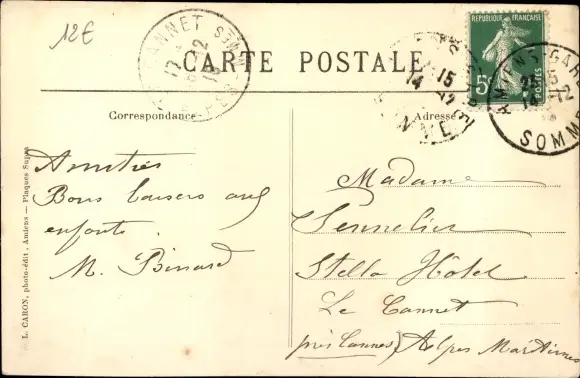 12€
CARTE POSTALE
RÉPUBLIQUE FRANÇAISE
5c
POSTES
CANNET
17
12
14
15
14
12
AMIENS-GARE
25
12
SOMME
Correspondance
Adresse
Amitiés
Bons baisers aux
enfants.
M. Binard
Madame
Sennelier
Stella Hôtel
Le Cannet
près Cannes) Alpes Maritimes
L. CARON, photo-édit. Amiens — Plaques